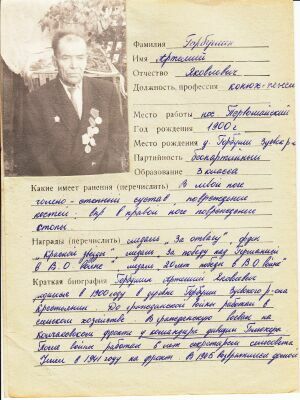 Фамилия Горбушин
Имя Артемий
Отчество Яковлевич
Должность, профессия конюх-пенси
Место работы пос Первомайский
Год рождения 1900 г
Место рождения д. Горбуши Зуевск р
Партийность беспартийный
Образование 3 класса
Какие имеет ранения (перечислить) В левой ноге
голено-стопный сустав, повреждение
костей; в правой ноге повреждение
стопы
Награды (перечислить) медаль "За отвагу", орден
"Красной звезды", медаль за победу над Германией
в В.О. войне", медаль 20 лет победы в В.О войне"
Краткая биография Горбушин Артемий Яковлевич
родился в 1900 году в деревне Горбуши Зуевского р-она
Крестьянин. До гражданской войны работал в
сельском хозяйстве. В гражданскую воевал на
Колчаковском фронте у командира дивизии
После войны работал 6 лет секретарем сельсовета
Ушел в 1941 году на фронт. В 1945 возвратился домой